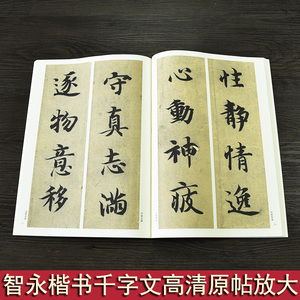 性静情逸
心動神疲
守真志滿
逐物意移
智永楷书千字文高清原帖放大